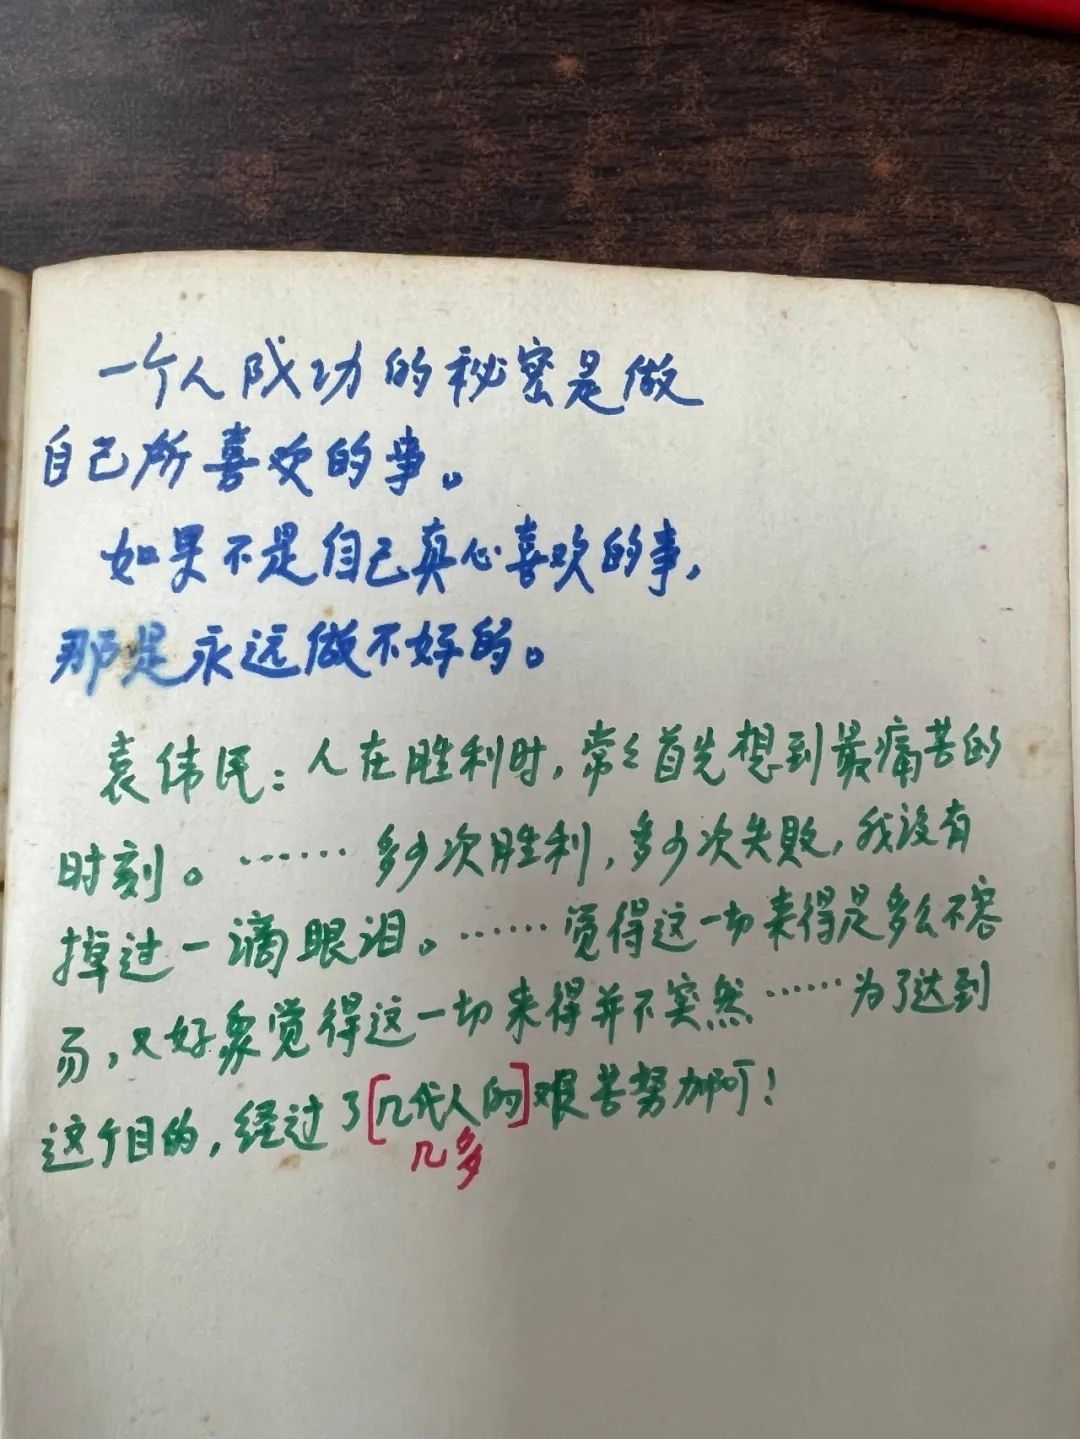 一个人成功的秘密是做
自己所喜欢的事。
如果不是自己真心喜欢的事，
那是永远做不好的。
袁伟民：人在胜利时，常々首先想到最痛苦的
时刻。……多少次胜利，多少次失败，我没有
掉过一滴眼泪。……觉得这一切来得是多么不容
易，又好象觉得这一切来得并不突然……为了达到
这个目的，经过了[几代人的]艰苦努力啊！
几多